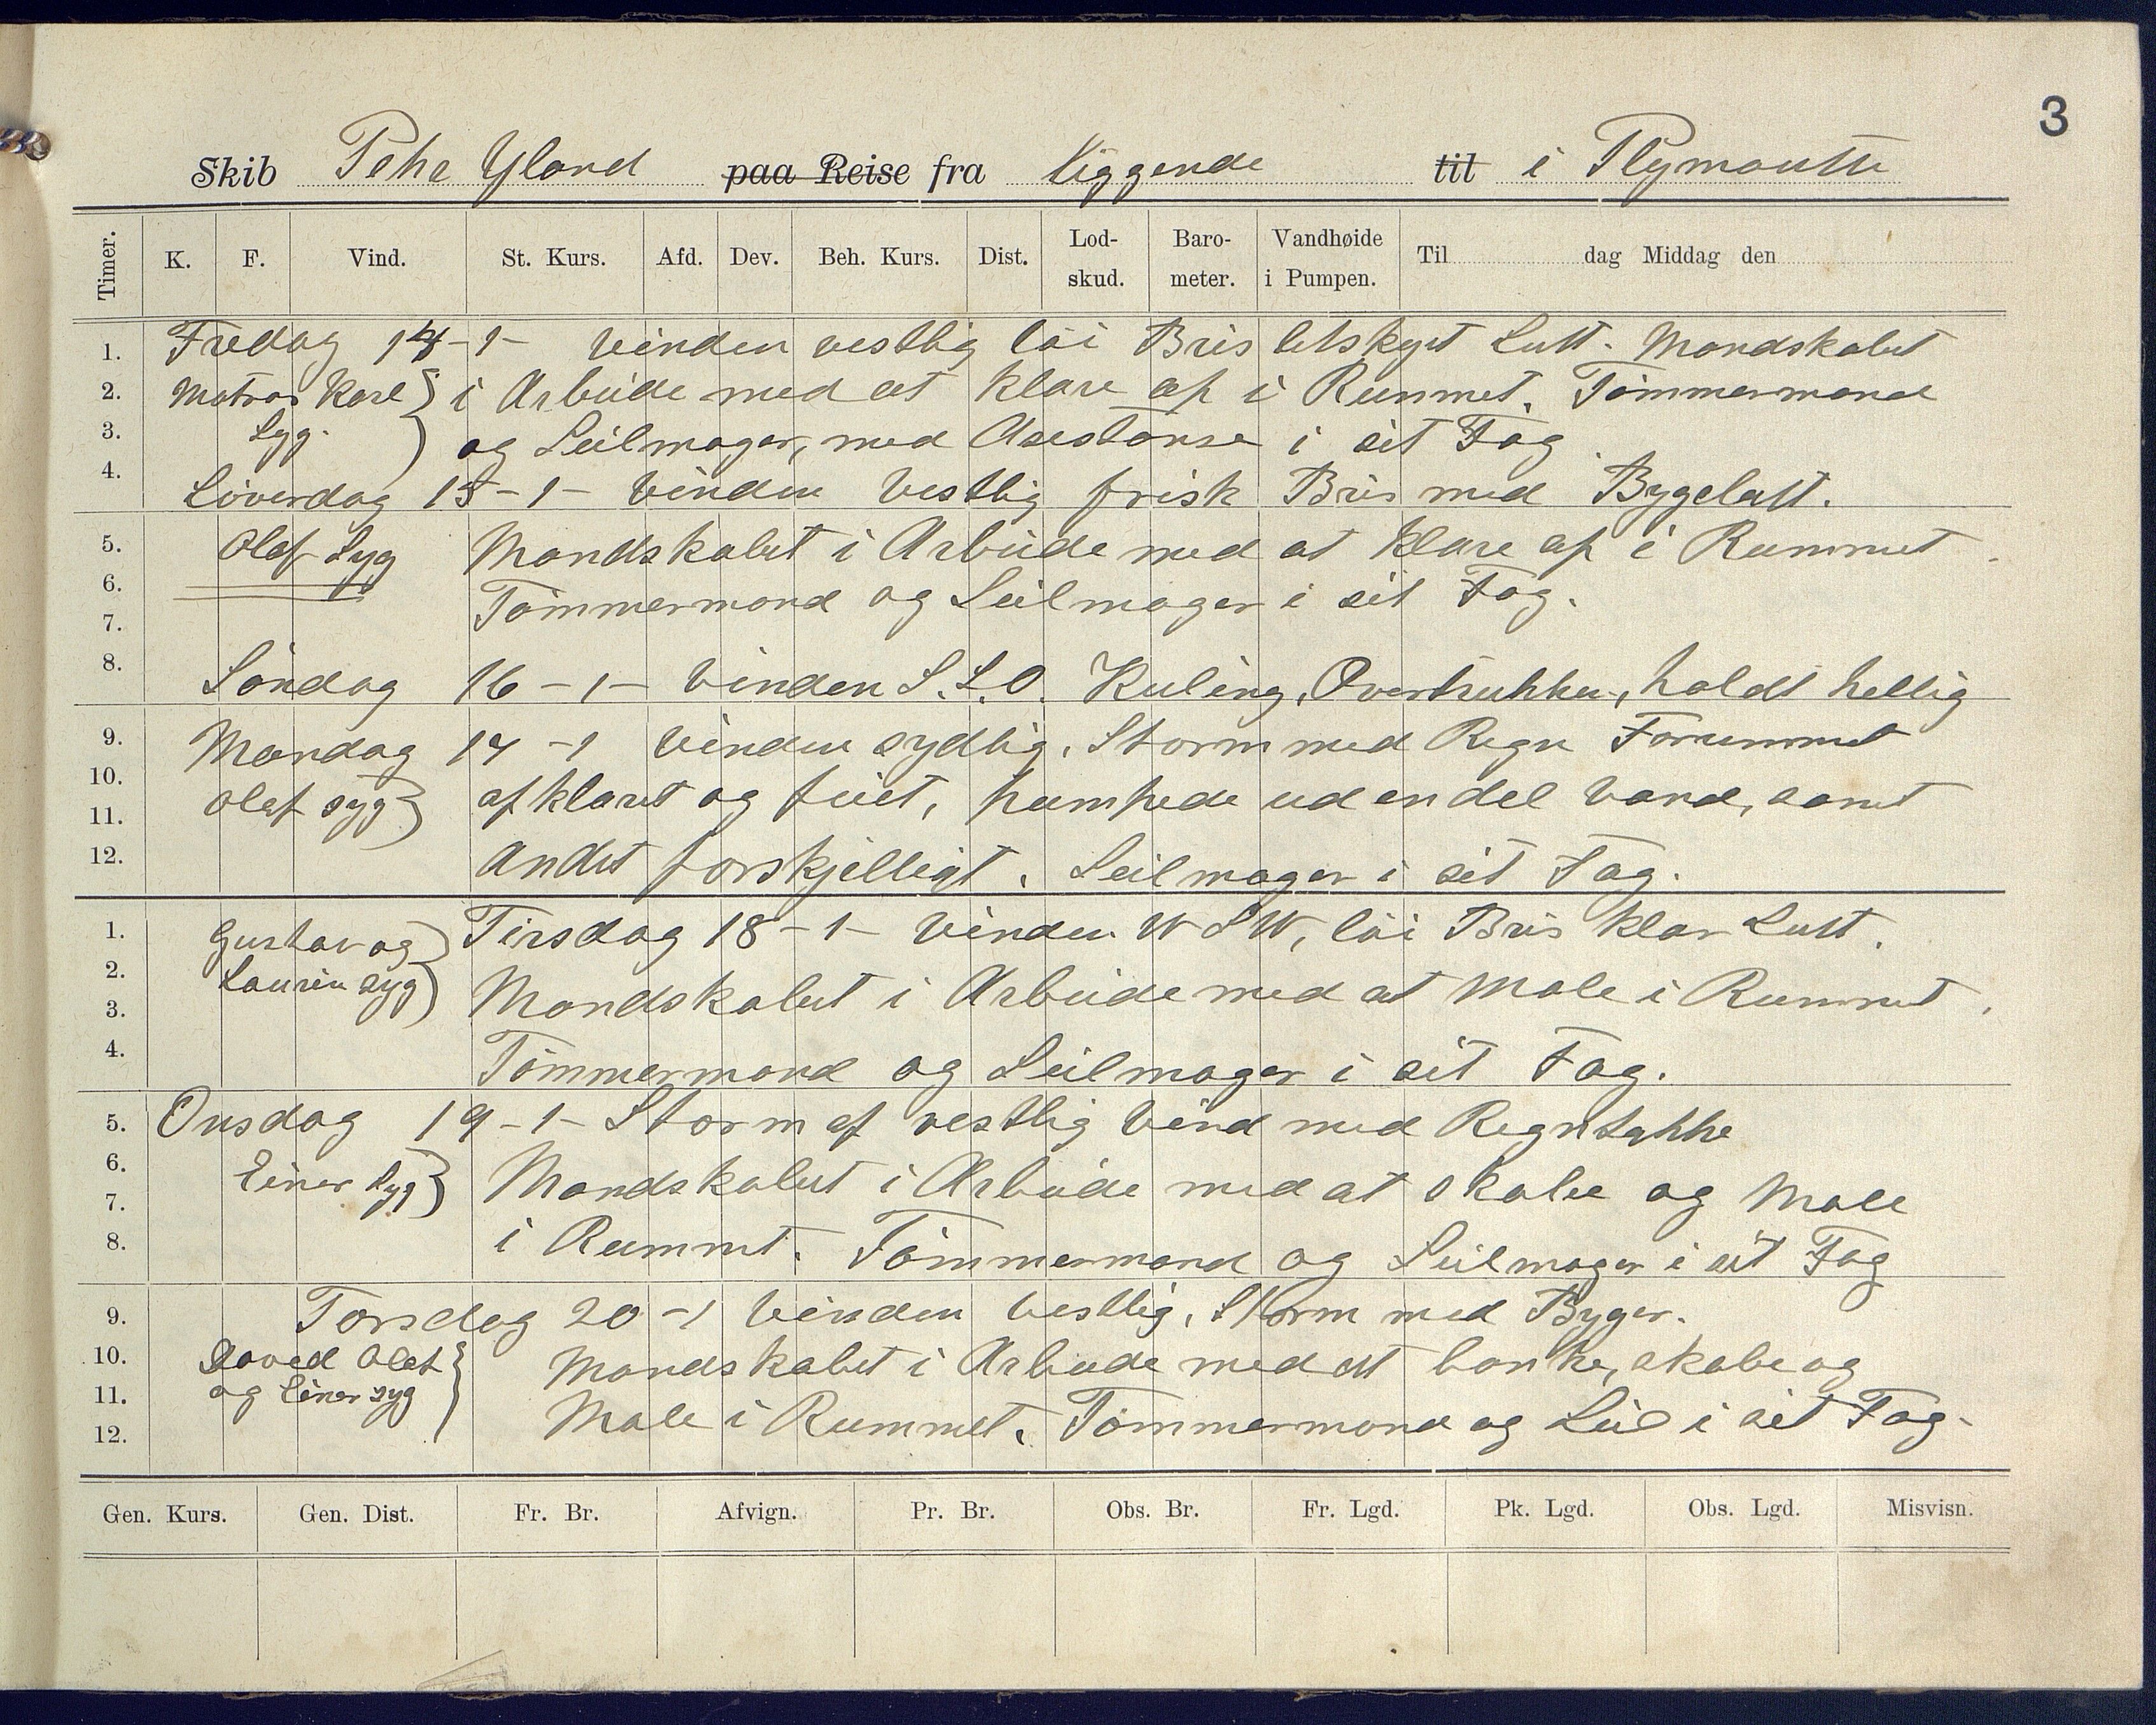 3
Skib Pehr Ugland paa Reise fra liggende til i Plymouth
Timer. K. F. Vind. St. Kurs. Afd. Dev. Beh. Kurs. Dist. Lod-skud. Baro-meter. Vandhøide i Pumpen. Til dag Middag den
1. Fredag 14-1- Vinden vestlig löi Bris letskyet Luft. Mandskabet
2. Matros Karl } i Arbeide med at klare op i Rummet. Tömmermand
3. Syg. ) og Seilmager, med Asistanse i sit Fag
4. Löverdag 15-1- Vinden Vestlig frisk Bris med Bygeluft.
5. Olaf Syg Mandskabet i Arbeide med at klare op i Rummet
6. Tömmermand og Seilmager i sit Fag.
7.
8. Söndag 16-1- Vinden S.S.O. Kuling, Overtrukken, holdt hellig
9. Mandag 17-1 Vinden sydlig. Storm med Regn Forummet
10. Olaf syg } afklaret og feiet, pumpede ud en del Vand, samt
11.
12. Andet forskjelligt. Seilmager i sit Fag.
1. Gustav og } Tirsdag 18-1- Vinden WSW, löi Bris klar Luft.
2. Laurin syg )
3. Mandskabet i Arbeide med at Male i Rummet.
4. Tömmermand og Seilmager i sit Fag.
5. Onsdag 19-1- Storm af vestlig Vind med Regntykke
6. Einar Syg } Mandskabet i Arbeide med at skabe og Male
7.
8. i Rummet. Tömmermand og Seilmager i sit Fag
9. Torsdag 20-1 Vinden Vestlig, Storm med Byger.
10. David Olaf } Mandskabet i Arbeide med at banke, skabe og
11. og Einar syg Male i Rummet. Tömmermand og Seil i sit Fag.
12.
Gen. Kurs. Gen. Dist. Fr. Br. Afvign. Pr. Br. Obs. Br. Fr. Lgd. Pk. Lgd. Obs. Lgd. Misvisn.